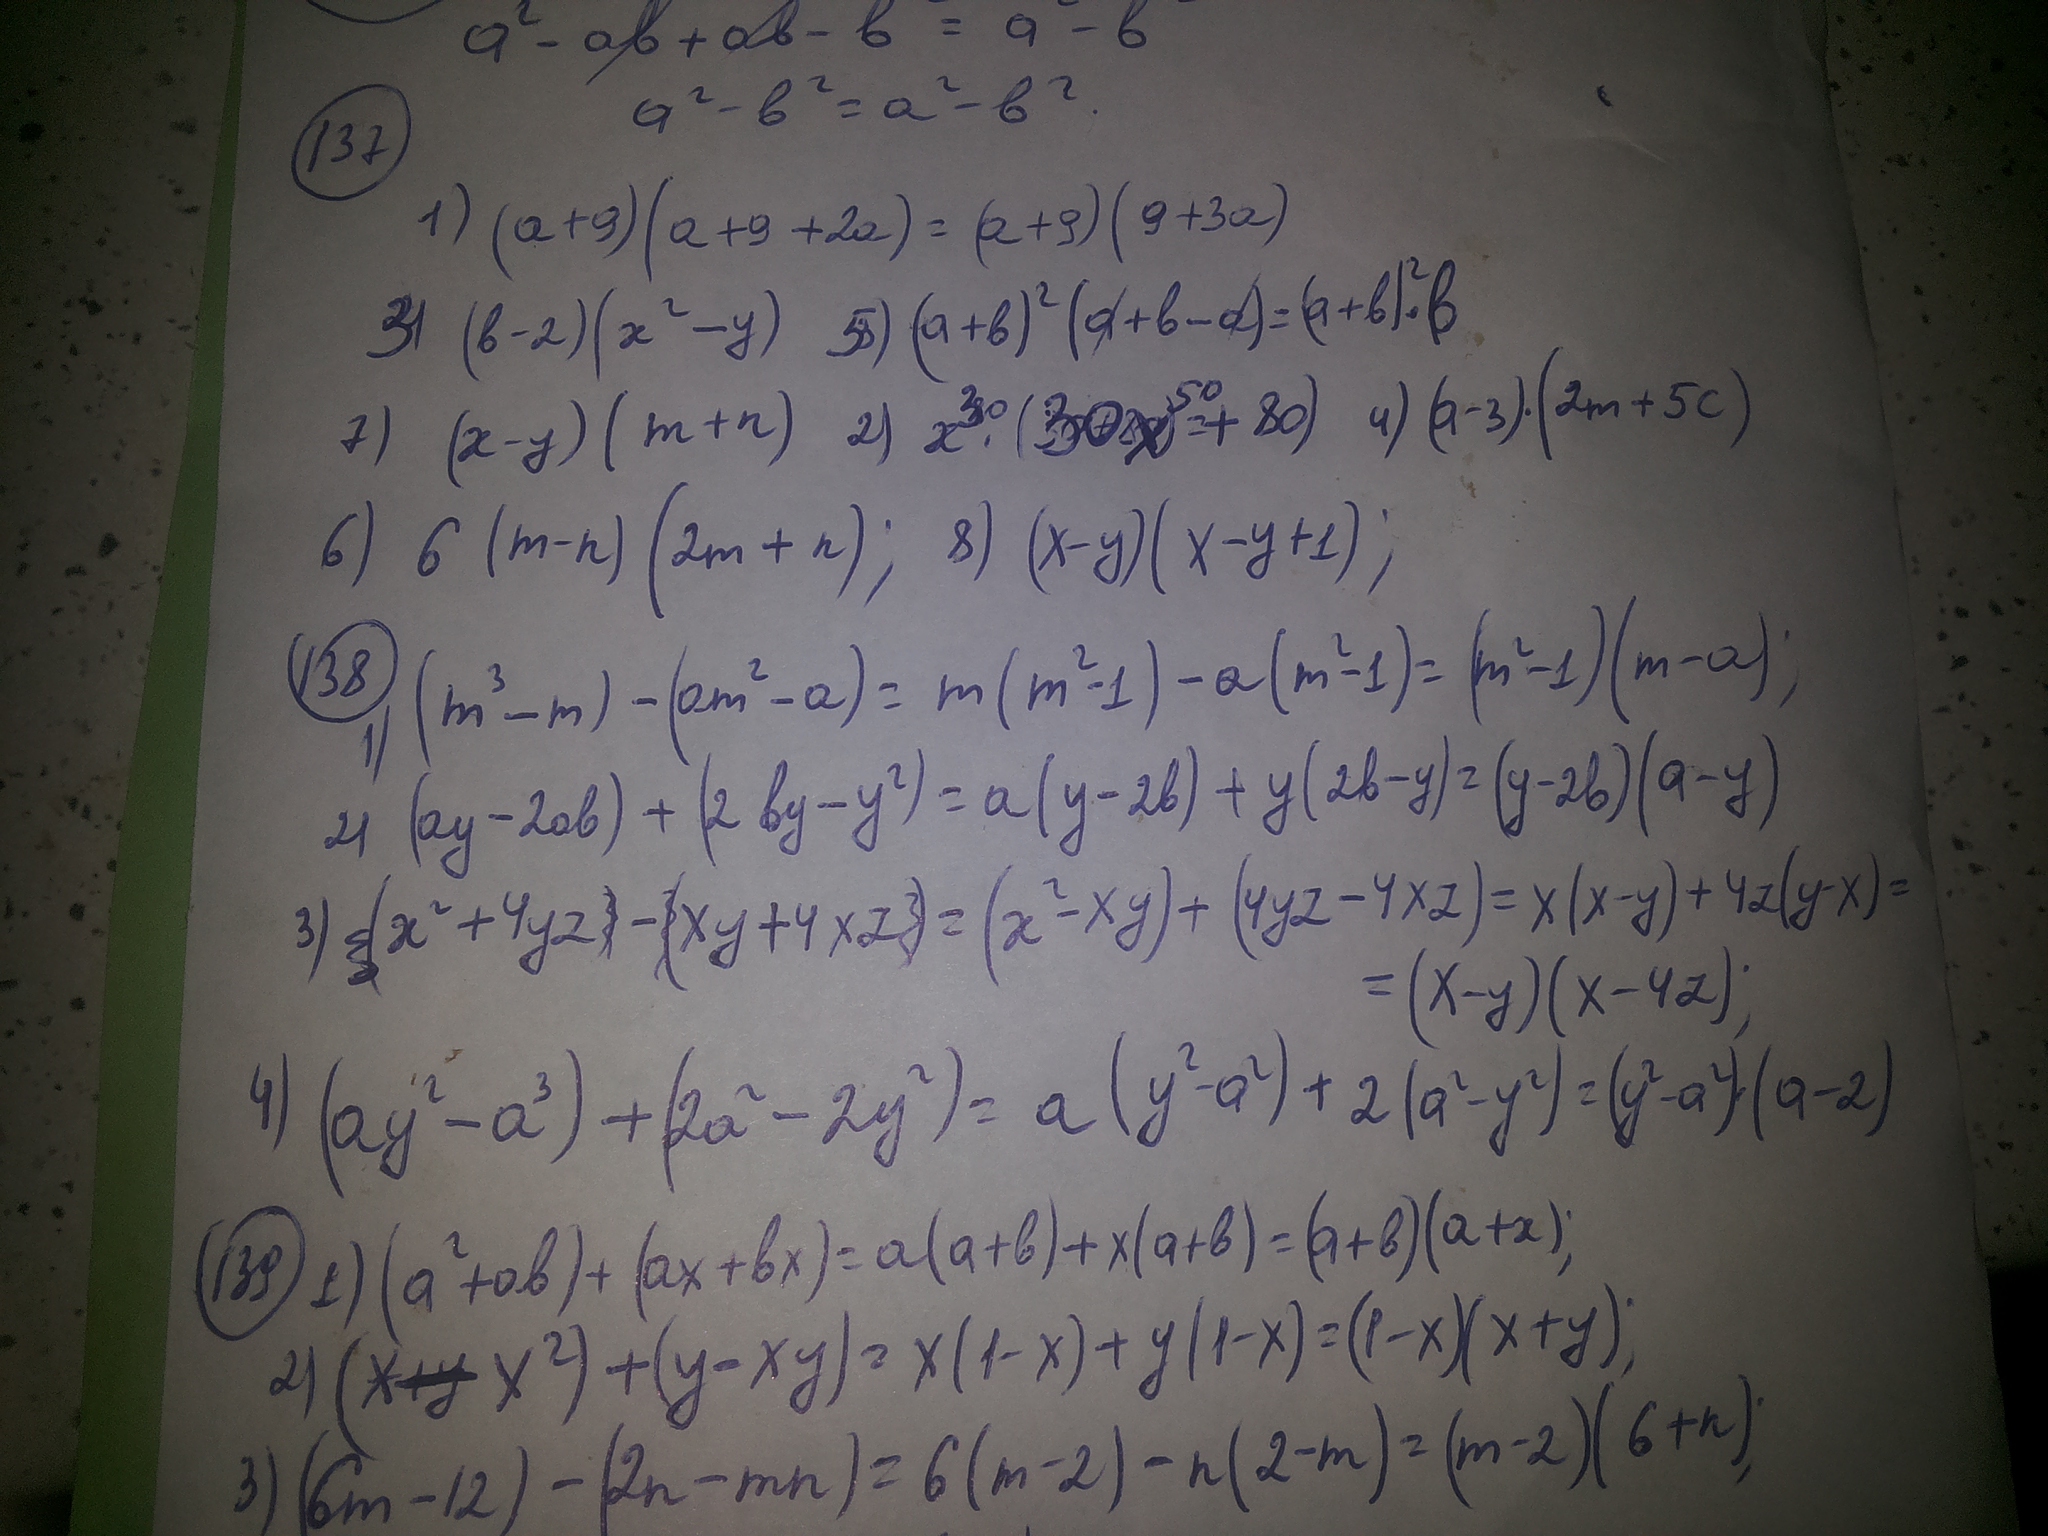 a² - ab + ab - b² = a² - b²
a² - b² = a² - b².
137
1) (a+9)(a+9+2a) = (a+9)(9+3a)
3) (b-2)(x²-y) 5) (a+b)²(a+b-a) = (a+b)²·b
7) (x-y)(m+n) 2) x³⁰·( ⁵⁰ + 80) 4) (a-3)·(2m+5c)
6) 6(m-n)(2m+n); 8) (x-y)(x-y+1);
138
1) (m³-m) - (am²-a) = m(m²-1) - a(m²-1) = (m²-1)(m-a);
2) (ay-2ab) + (2by-y²) = a(y-2b) + y(2b-y) = (y-2b)(a-y)
3) {x²+4yz} - {xy+4xz} = (x²-xy) + (4yz-4xz) = x(x-y) + 4z(y-x) =
= (x-y)(x-4z);
4) (ay²-a³) + (2a²-2y²) = a(y²-a²) + 2(a²-y²) = (y²-a²)·(a-2)
139 1) (a²+ab) + (ax+bx) = a(a+b) + x(a+b) = (a+b)(a+x);
2) (x+y x²) + (y-xy) = x(1-x) + y(1-x) = (1-x)(x+y);
3) (6m-12) - (2n-mn) = 6(m-2) - n(2-m) = (m-2)(6+n);